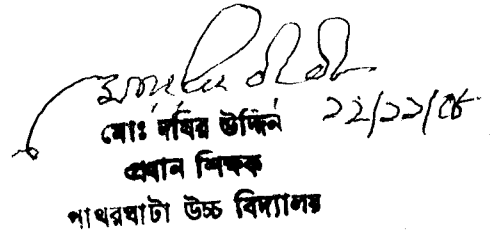 ১২/১১/০৮
মোঃ দবির উদ্দিন
প্রধান শিক্ষক
পাথরঘাটা উচ্চ বিদ্যালয়